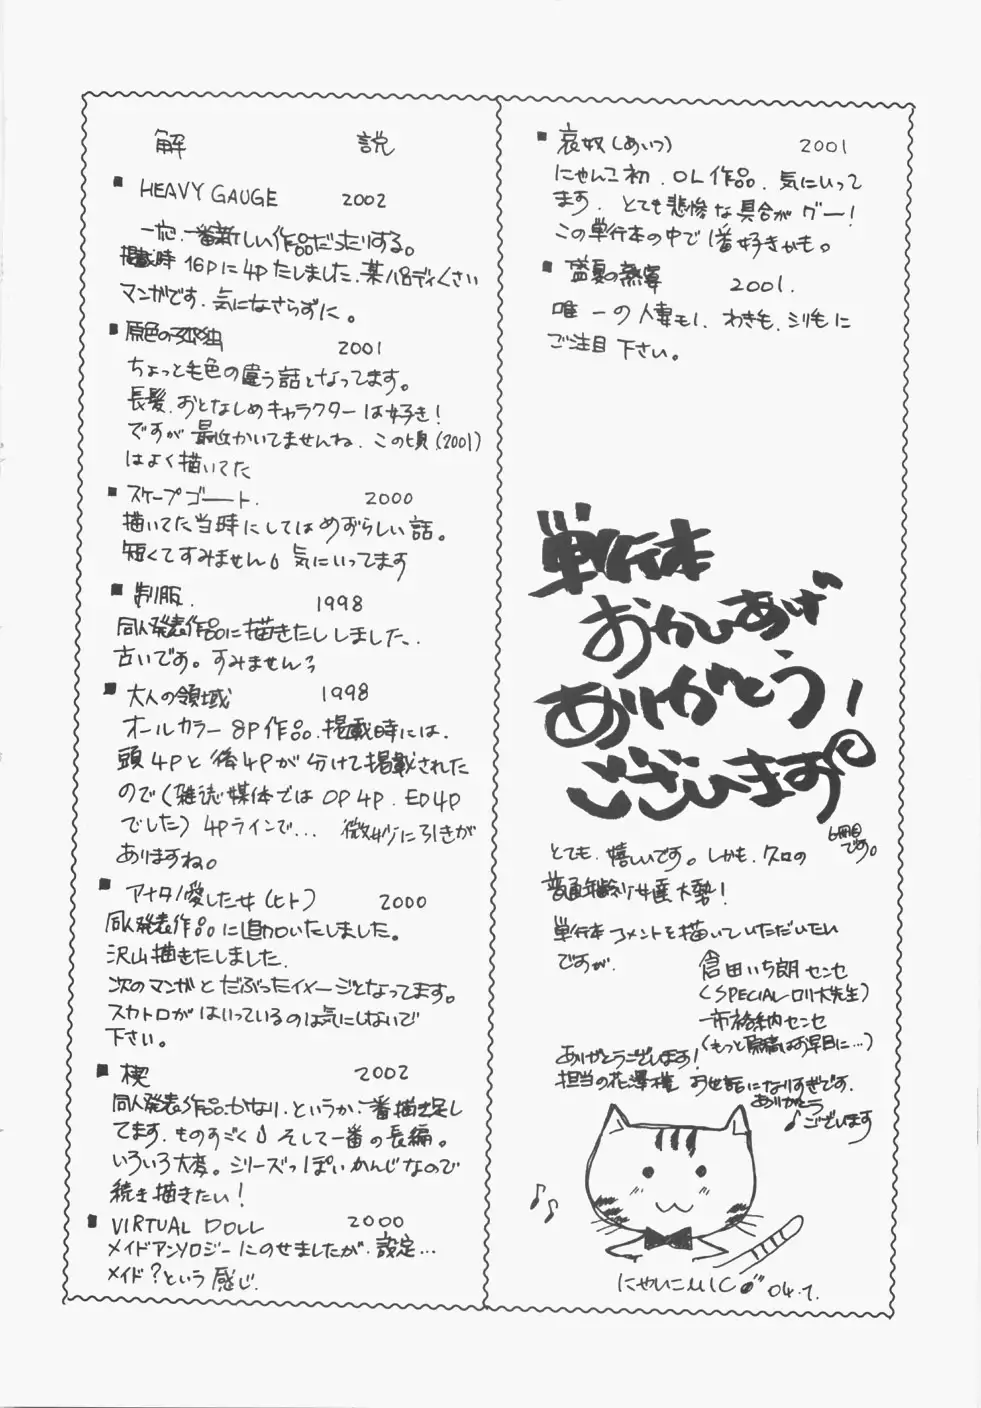 解 説
■ HEAVY GAUGE 2002
一応、一番新しい作品だったりする。
掲載時16Pに4Pたしました、某パロディくさい
マンガです、気になさらずに。
■ 原色の孤独 2001
ちょっと毛色の違う話となってます。
長髪、おとなしめキャラクターは好き!
ですが最近かいてませんね、この頃(2001)
はよく描いてた
■ スケープゴート. 2000
描いてた当時にしてはめずらしい話。
短くてすみません 気にいってます
■ 制服. 1998
同人発表作品に描きたししました、
古いです。すみませんっ
■ 大人の領域 1998
オールカラー8P作品、掲載時には、
頭4Pと後4Pが分けて掲載された
ので(雑誌媒体ではOP4P、ED4P
でした)4Pラインで… 微妙に引きが
ありますね。
■ アナタノ愛した女(ヒト) 2000
同人発表作品に追加いたしました。
沢山描きたしました、
次のマンガとだぶったイメージとなってます。
スカトロがはいっているのは気にしないで
下さい。
■ 楔 2002
同人発表作品、かなり、というか、一番描き足し
てます、ものすごく そして一番の長編。
いろいろ大変。シリーズっぽいかんじなので
続き描きたい!
■ VIRTUAL DOLL 2000
メイドアンソロジーにのせましたが、設定…
メイド?という感じ.
■ 哀奴(あいつ) 2001
にゃんこ初、OL作品、気にいって
ます、とても悲惨な具合がグー!
この単行本の中で1番好きかも。
■ 盛夏の熱宴 2001.
唯一の人妻モノ、わき毛、シリ毛に
ご注目下さい。
単行本
おかいあげ
ありがとう!
ございます
6冊目
です。
とても、嬉しいです。しかも、クロの
普通年齢が女産大勢!
単行本コメントを描いていただいたい
ですが、
倉田いち朗センセ
(SPECIALロリ大先生)
一市格納センセ
(もっと原稿はお早目に…)
ありがとうございます!
担当の花澤様 お世話になりすぎです、
ありがとう
♪ございます
にゃんこMIC 04.7.